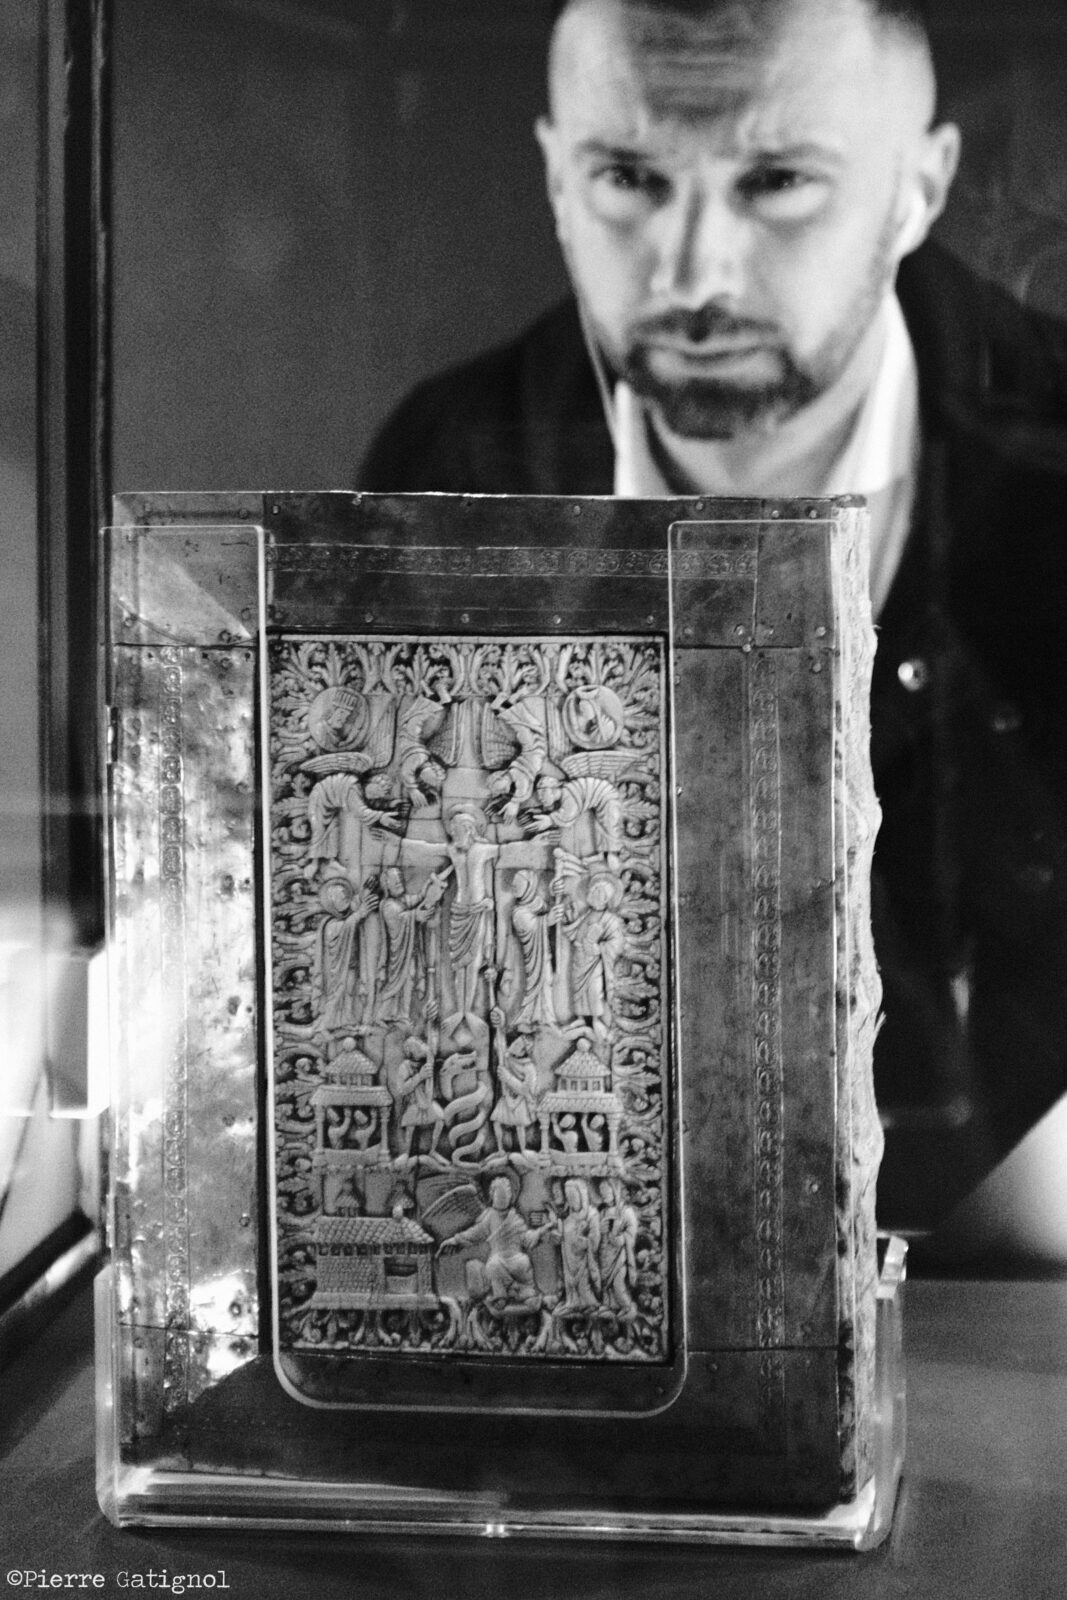 ©Pierre Gatignol